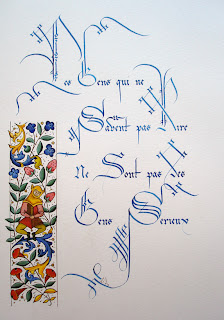 Les Gens qui ne
Savent pas Rire
Ne Sont pas des
Gens Serieux